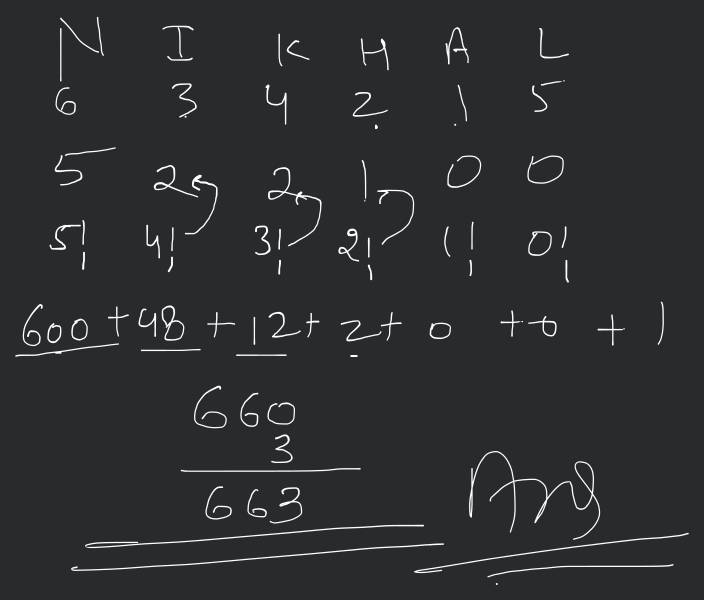 N I K H A L
6 3 4 2 1 5
5 2 2 1 0 0
5! 4! 3! 2! 1! 0!
600 + 48 + 12 + 2 + 0 + 0 + 1
660
3
663
Ans